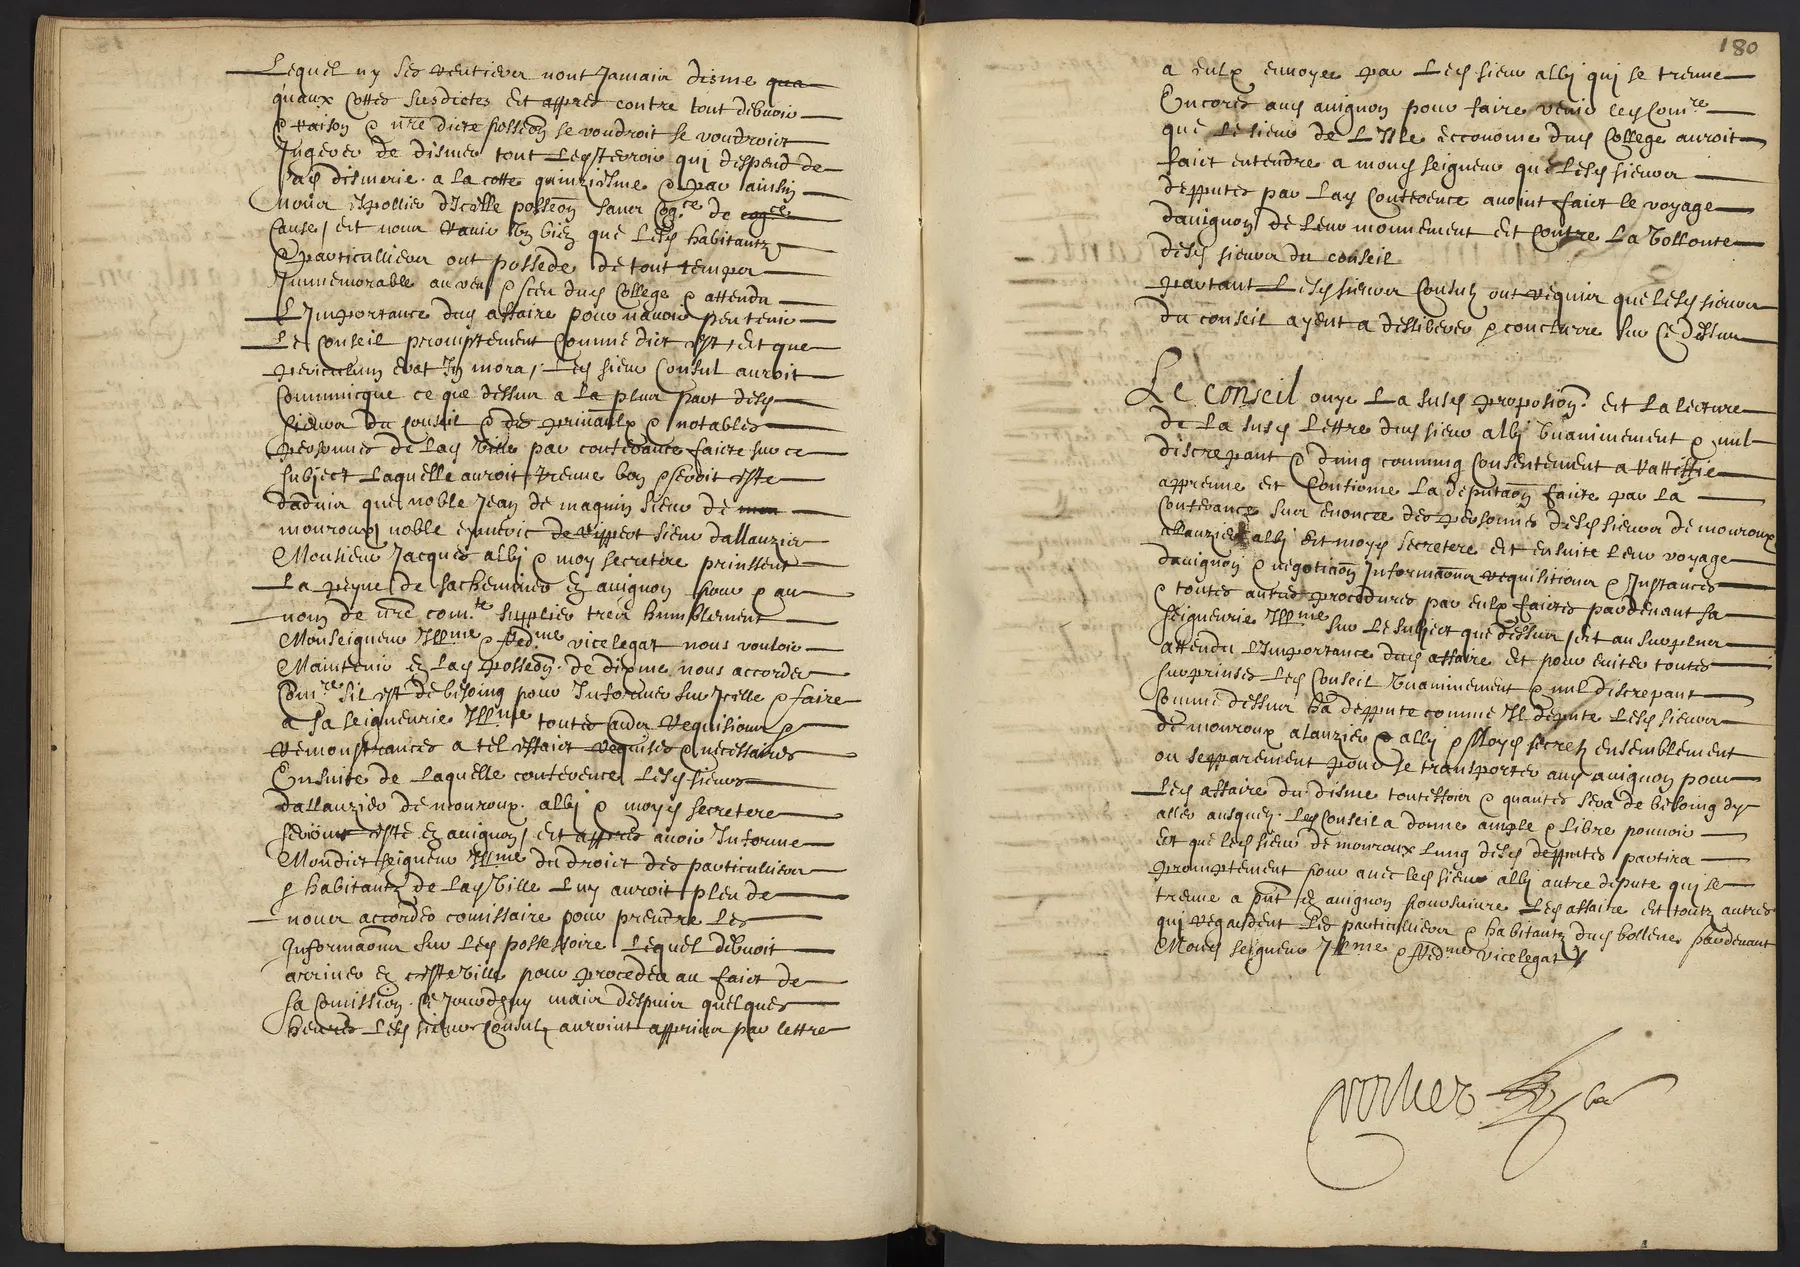 Lequel ny ses rentiers nont Jamais disme qua
quaux cottes susdictes Et appres contre tout debvoir
& raison & nre dicte possession se voudroit se voudroict
Ingerer de dismer tout qui despend de
lad dismerie a la cotte quinziesme & par ainsin
nous spollier dicelle possession sans cogce de cogce
cause, Et nous ravir un bien que lesd habitantz
& particulliers ont possede de tout temps
Immemorable au veu & sceu dud College & attendu
L Importance dud affaire pour navoir peu tenir
Le Conseil promptement comme dict est, Et que
periculum erat In mora, Led sieur Consul auroit
Communicque ce que dessus a la plus part desd
sieurs du conseil & des prinaulx & notables
personnes de lad Ville par conferance faicte sur ce
subject Laquelle auroit treuve bon & seroit este
dadvis que noble Jean de maguin sieur de
mouroux, noble eymeric de sieur dallauzier
Monsieur Jacques albi & moy secretere prinssent
La peyne de sacheminer en avignon pour & au
nom de nre comte supplier tres humblement
Monseigneur Illme & Redme vicelegat nous vouloir
Maintenir en lad possession de dixme nous accorder
Comre sil est de besoing pour Informer sur Icelle & faire
a sa seigneurie Illme toutes requisitions &
remonstrances a tel effaict requises & necessaires
Ensuite de laquelle conference lesd sieurs
dallauzier de mouroux albi & moyd secretere
seroint este en avignon, Et appres avoir Informe
Mondict seigneur Illme du droict des particuliers
& habitantz de lad Ville Luy auroit pleu de
nous accorder comissaire pour prendre les
Informaons sur led possessoire Lequel debvoit
arriver en ceste Ville pour proceder au faict de
sa Comission Ce Jourdhuy mais despuis quelques
heures Lesd sieurs Consulz auroint apprins par lettre
180
a eulx envoyee par Led sieur albi qui se treuve
Encores aud avignon pour faire venir led Comre
que Le sieur de L Isle economme dud College auroit
faict entendre a mond seigneur que lesd sieurs
depputes par lad Conference avoint faict le voyage
davignon de leur mouvement Et contre La Vollonte
desd sieurs du conseil
partant Lesd sieurs Consulz ont requis que lesd sieurs
du conseil ayent a deliberer & conclurre sur ce dessus
Le conseil ouye La susd proposition Et la lecture
de La susd Lettre dud sieur albi Unanimement & nul
discrepant & dung commung consentement a rattiffie
appreuve Et confirme La deputaon faicte par la
Conferance sus enoncee des personnes desd sieurs de mouroux
alauzier albi Et moyd secretere Et ensuite leur voyage
davignon & negotiaon Informaons requisitions & Instances
& toutes autres procedures par eulx faictes pardevant sa
seigneurie Illme sur le subject que dessus, Et au surplus
attendu L Importance dud affaire Et pour eviter toutes
surprinses Led Conseil Unanimement & nul discrepant
Comme dessus ha deppute comme Il depute Lesd sieurs
de mouroux alauzier & albi & Moyd secretere ensemblement
ou separement pour se transporter aud avignon pour
Led affaire du disme touteffois & quantes sera de besoing dy
aller ausquez Led Conseil a donne ample & libre pouvoir
Et que led sieur de mouroux lung desd depputes partira
promptement pour avec led sieur albi autre depute qui se
treuve a pnt en avignon poursuivre Led affaire Et toutz autres
qui regardent les particulliers & habitantz dud bollene pardevant
Mond seigneur Illme & Redme vicelegat